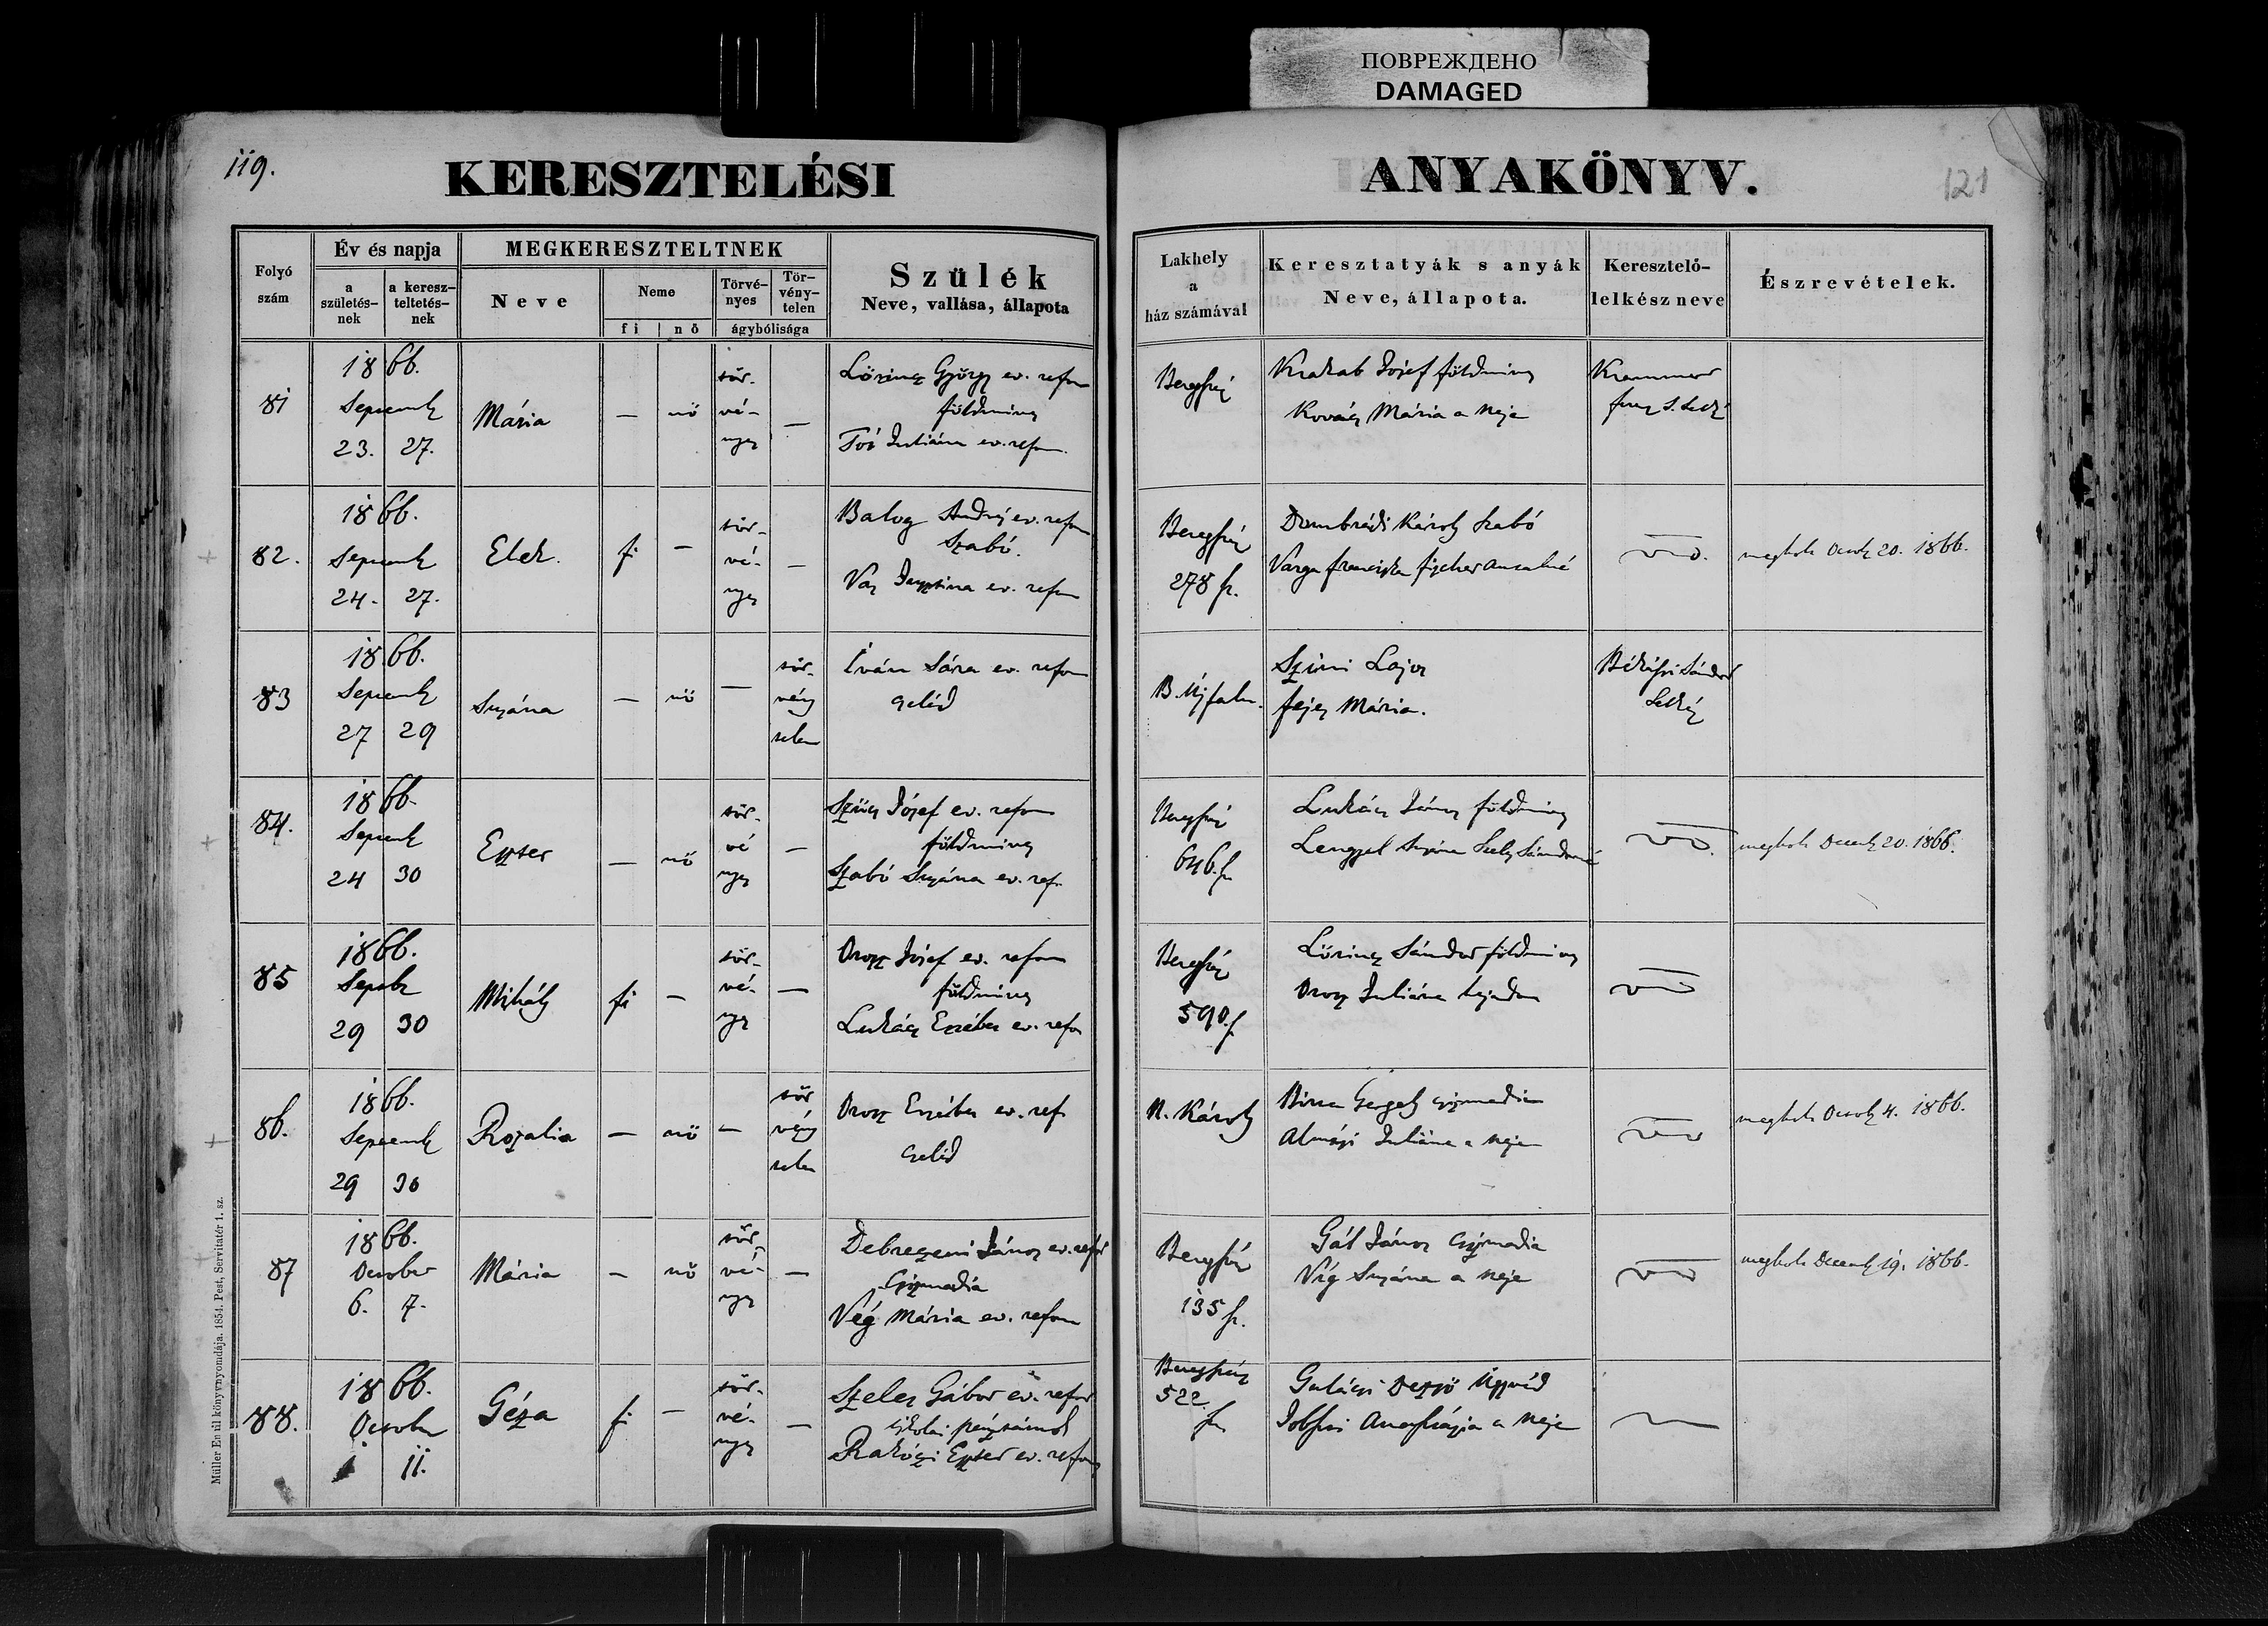 ПОВРЕЖДЕНО
DAMAGED
119.
KERESZTELÉSI
ANYAKÖNYV.
121
Folyó szám
Év és napja
a születés-nek
a keresz-teltetés-nek
MEGKERESZTELTNEK
Neve
Neme
fi
nő
Törvé-nyes
Tör-vény-telen
ágybólisága
Szülék
Neve, vallása, állapota
Lakhely
a
ház számával
Keresztatyák s anyák
Neve, állapota.
Keresztelő-
lelkész neve
Észrevételek.
81
1866.
Septemb
23. 27.
Mária
—
nő
tör-
vé-
nyes
—
Lőrincz György ev. refor
földműves
Juliána ev. refor.
Beregszász
József földműves
Kovács Mária a neje
82.
1866.
Septemb
24. 27.
Elek.
fi
—
tör-
vé-
nyes
—
Balog András ev. refor
Szabó.
ev. refor
Beregszász
278 sz.
Dombrádi Károly Szabó
Varga Francziska
megholt Octob 20. 1866.
83
1866.
Septemb
27 29
Zsuzsána
—
nő
—
tör-
vény
telen
Iván Sára ev. refor
cseléd
B. Újfalu.
Lajos
Fejes Mária.
Békássi Sándor
Lelkész
84.
1866.
Septemb
24 30
Eszter
—
nő
tör-
vé
nyes
—
Szűcs József ev. refor
földműves
Szabó Zsuzsána ev. ref.
Beregszász
646. sz
Lukács János földműves
Lengyel Zsuzsána
megholt Decemb 20. 1866.
85
1866.
Septbr
29 30
Mihály
fi
—
tör-
vé-
nyes
—
Orosz József ev. refor
földműves
Lukács Erzsébet ev. refor
Beregszász
590. sz
Lőrincz Sándor földműves
Orosz Juliána hajadon
86.
1866.
Septemb
29 30
Rozalia
—
nő
—
tör
vény
telen
Orosz Erzsébet ev. ref
cseléd
N. Károly
Gergely csizmadia
Almási Juliána a neje
megholt Octob 4. 1866.
87
1866.
October
6. 7.
Mária
—
nő
tör-
vé-
nyes
—
Debreczeni János ev. refor
Csizmadia
Vég Mária ev. refor
Beregszász
135 sz.
Gál János Csizmadia
Víg Zsuzsána a neje
megholt Decemb 19. 1866.
88.
1866.
October
11.
Géza
fi
—
tör-
vé-
nyes
—
Szeles Gábor ev. refor
iskolai pénztárnok
Eszter ev. refor
Beregszász
522.
sz
Gulácsi Dezső Ügyvéd
a neje
Müller Emil könyvnyomdája. 1854. Pest, Servitatér 1. sz.